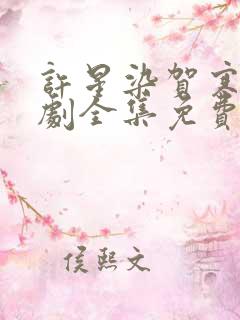 許星染賀寒
劇全集免費
侯熙文